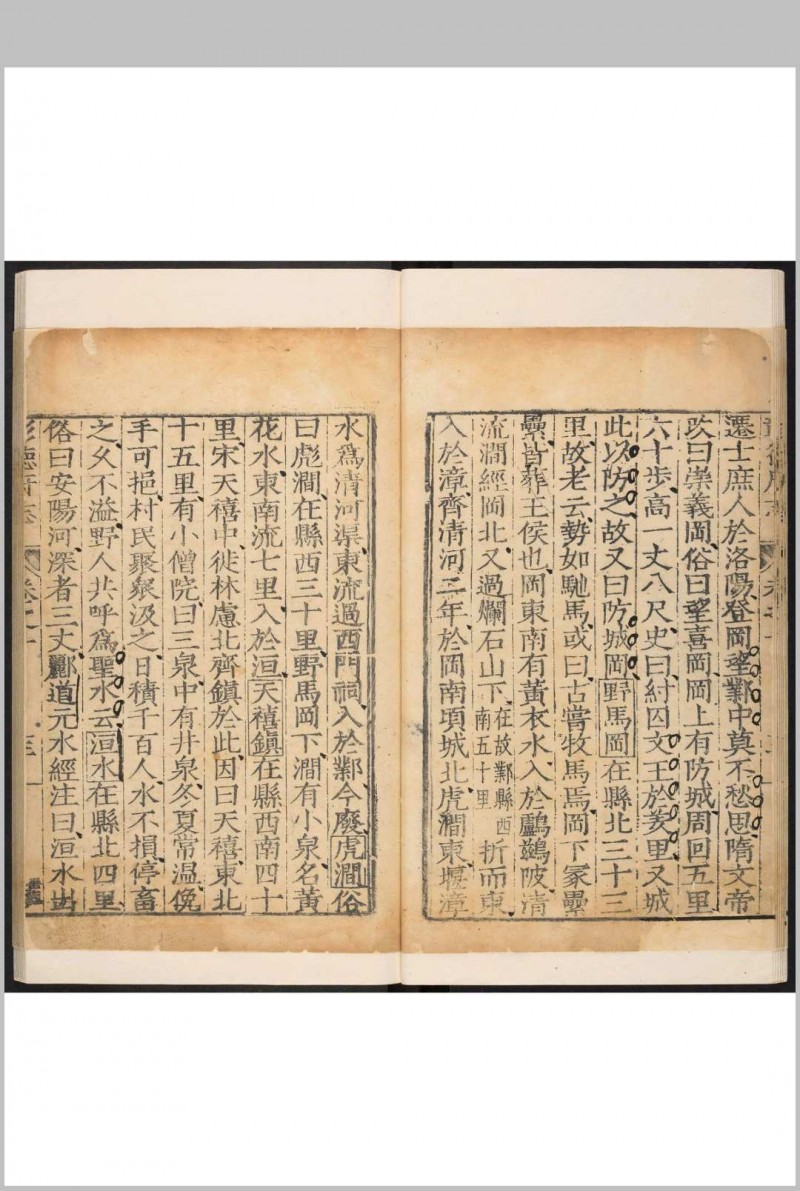 遷士庶人於洛陽登岡望鄴中莫不愁思隋文帝
改曰崇義岡俗曰望喜岡岡上有防城周回五里
六十歩高一丈八尺史曰紂囚文王於羑里又城
此以防之故又曰防城岡野馬岡在縣北三十三
里故老云勢如馳馬或曰古嘗牧馬焉岡下冢壘
壘皆葬王侯也岡東南有黃衣水入於鸕鷀陂清
流澗經岡北又過爛石山下在故鄴縣西南五十里折而東
入於漳齊清河二年於岡南頃城北虎澗東堰漳
水爲清河渠東流過西門祠入於鄴今廢虎澗俗
曰彪澗在縣西三十里野馬岡下澗有小泉名黃
花水東南流七里入於洹天禧鎮在縣西南四十
里宋天禧中徙林慮北齊鎮於此因曰天禧東北
十五里有小僧院曰三泉中有井泉冬夏常温俛
手可挹村民聚衆汲之日積千百人水不損停畜
之久不溢野人共呼爲聖水云洹水在縣北四里
俗曰安陽河深者三丈酈道元水經注曰洹水出
彰德府志 卷之